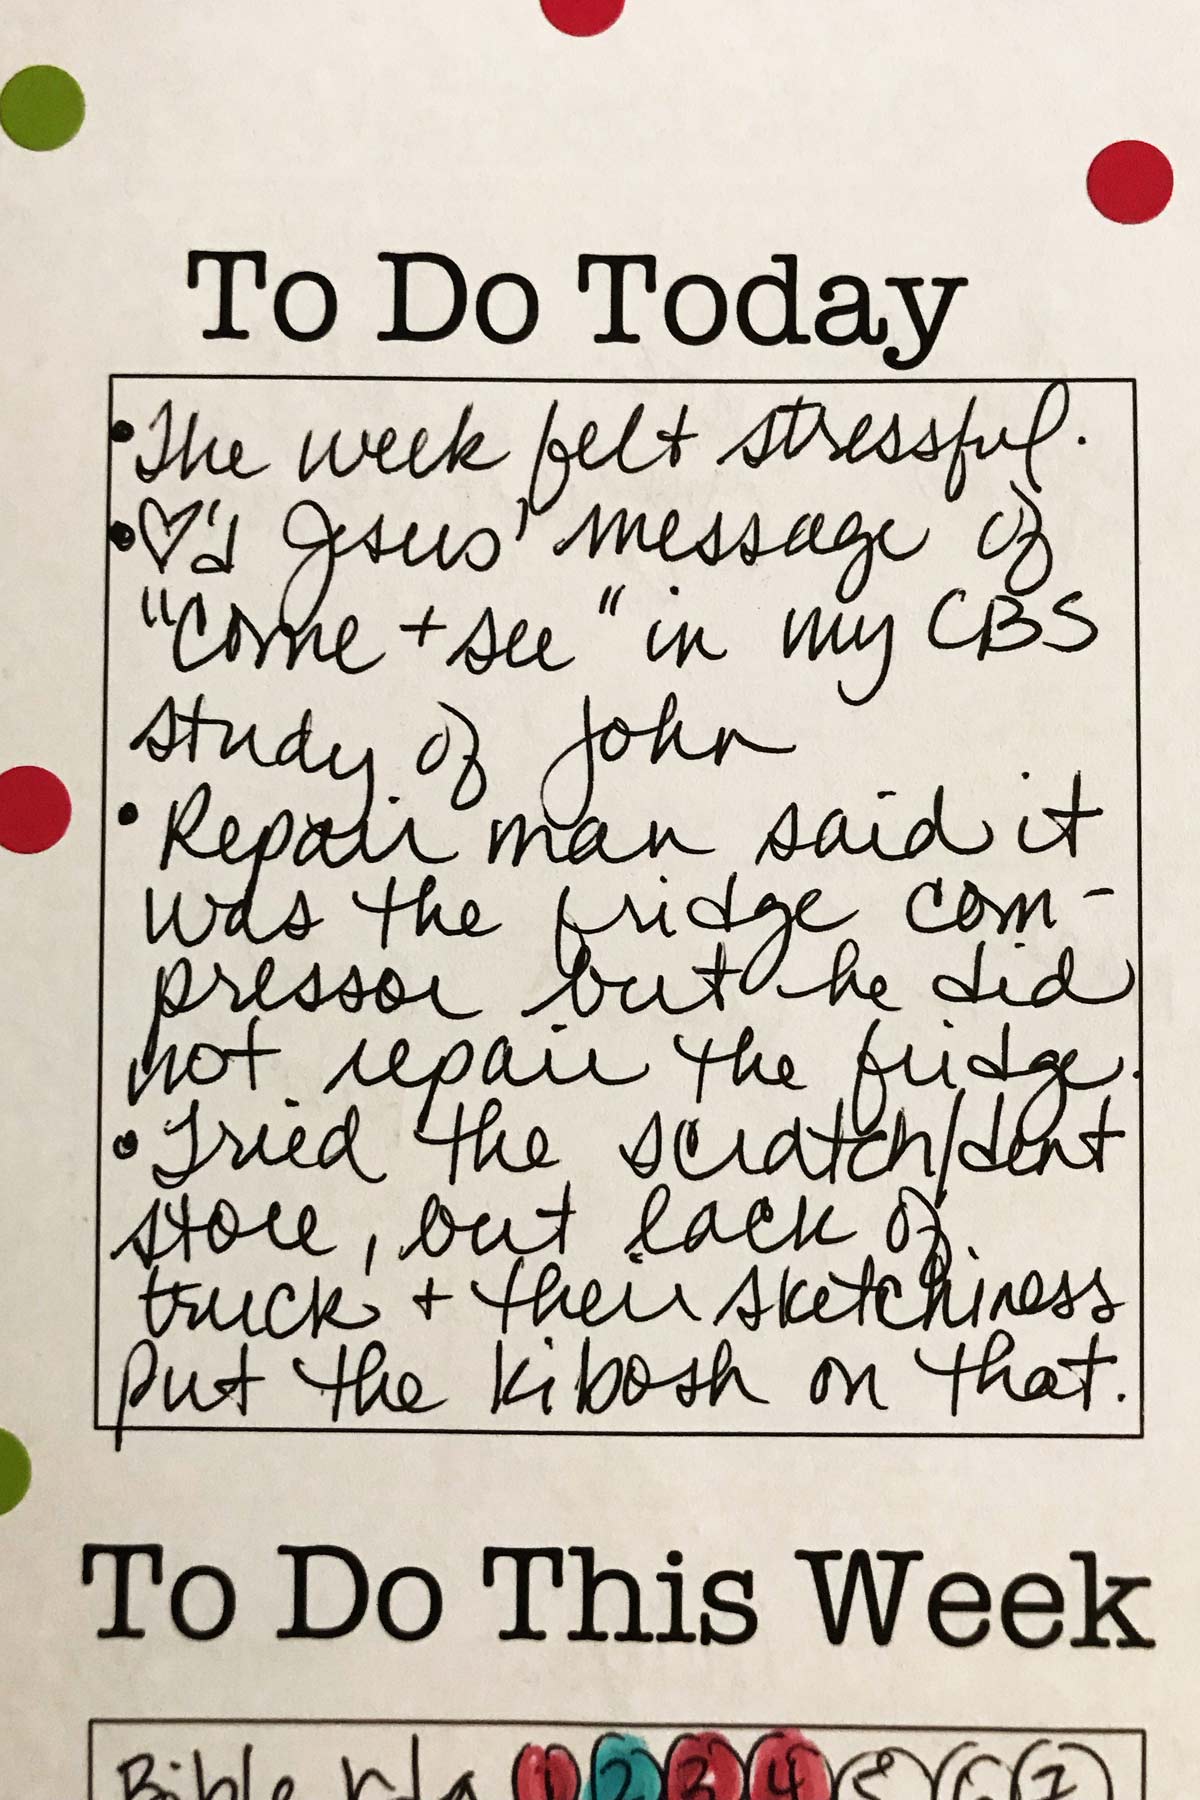 To Do Today
•The week felt stressful.
•♡'d Jesus' message of
"Come + see" in my CBS
study of John
• Repair man said it
was the fridge com-
pressor but he did
not repair the fridge.
• Tried the scratch/dent
store, but lack of
truck + their sketchiness
put the kibosh on that.
To Do This Week
Bible rdg 1 2 3 4 5 6 7